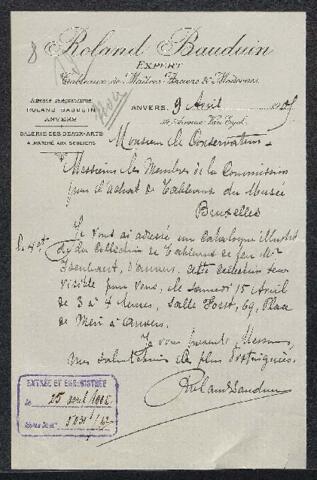 Roland Bauduin
EXPERT
Tableaux de Maîtres Anciens & Modernes
ADRESSE TÉLÉGRAPHIQUE
ROLAND BAUDUIN
ANVERS
GALERIE DES BEAUX-ARTS
4 MARCHÉ AUX SOULIERS
ANVERS, 9 Avril 1905
Avenue Van Eyck
Monsieur le Conservateur
Messieurs les Membres de la Commission
pour l'achat de Tableaux du Musée
Bruxelles
Je vous ai adressé un Catalogue illustré
de la Collection de Tableaux de feu Mr
d'Anvers, cette collection sera
visible pour vous, le samedi 15 Avril
de 3 à 7 heures, Salle Forst, 69, Place
de Meir à Anvers.
Je vous présente, Messieurs,
mes salutations les plus distinguées.
Roland Bauduin
ENTRÉE ET ENREGISTRÉE
le 25 avril 1905